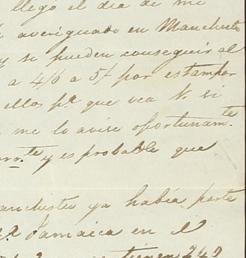 llegó el dia de mi
averiguado en Manchester
y se pueden conseguir al
a 4/6 a 5/ por estampar
ellos pª que vea V. si
me lo avise oportunamte
y es probable que
anchester ya habia parte
Jamaica en el